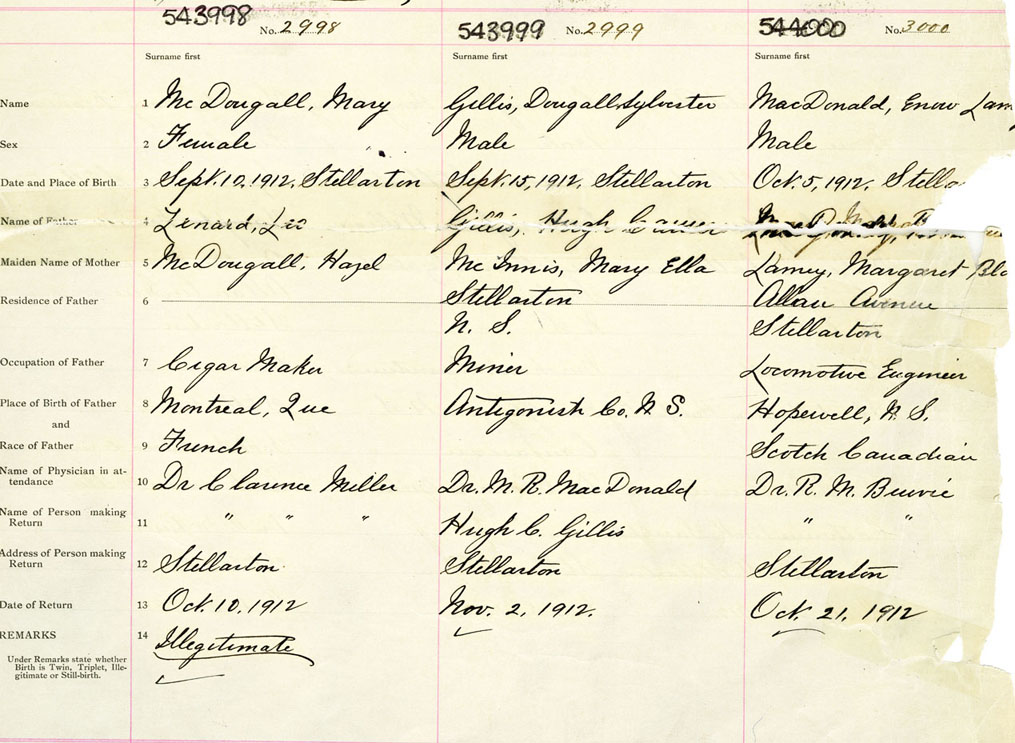 543998 No. 2998 543999 No. 2999 544000 No. 3000
Surname first Surname first Surname first
Name 1 McDougall, Mary Gillis, Dougall Sylvester MacDonald, Lam
Sex 2 Female Male Male
Date and Place of Birth 3 Sept. 10, 1912, Stellarton Sept. 15, 1912, Stellarton Oct. 5, 1912, Stella
Name of Father 4 Lenard, Leo Gillis, Hugh
Maiden Name of Mother 5 McDougall, Hazel McInnis, Mary Ella Lamey, Margaret
Residence of Father 6 Stellarton Allan Avenue
N. S. Stellarton
Occupation of Father 7 Cigar Maker Miner Locomotive Engineer
Place of Birth of Father 8 Montreal, Que Antigonish Co, N S. Hopewell, N. S.
and
Race of Father 9 French Scotch Canadian
Name of Physician in at-
tendance 10 Dr Clarence Miller Dr. M. R. MacDonald Dr. R. M.
Name of Person making
Return 11 " " " Hugh C. Gillis " "
Address of Person making
Return 12 Stellarton Stellarton Stellarton
Date of Return 13 Oct. 10, 1912 Nov. 2, 1912. Oct. 21, 1912
REMARKS 14 Illegitimate
Under Remarks state whether
Birth is Twin, Triplet, Ille-
gitimate or Still-birth.